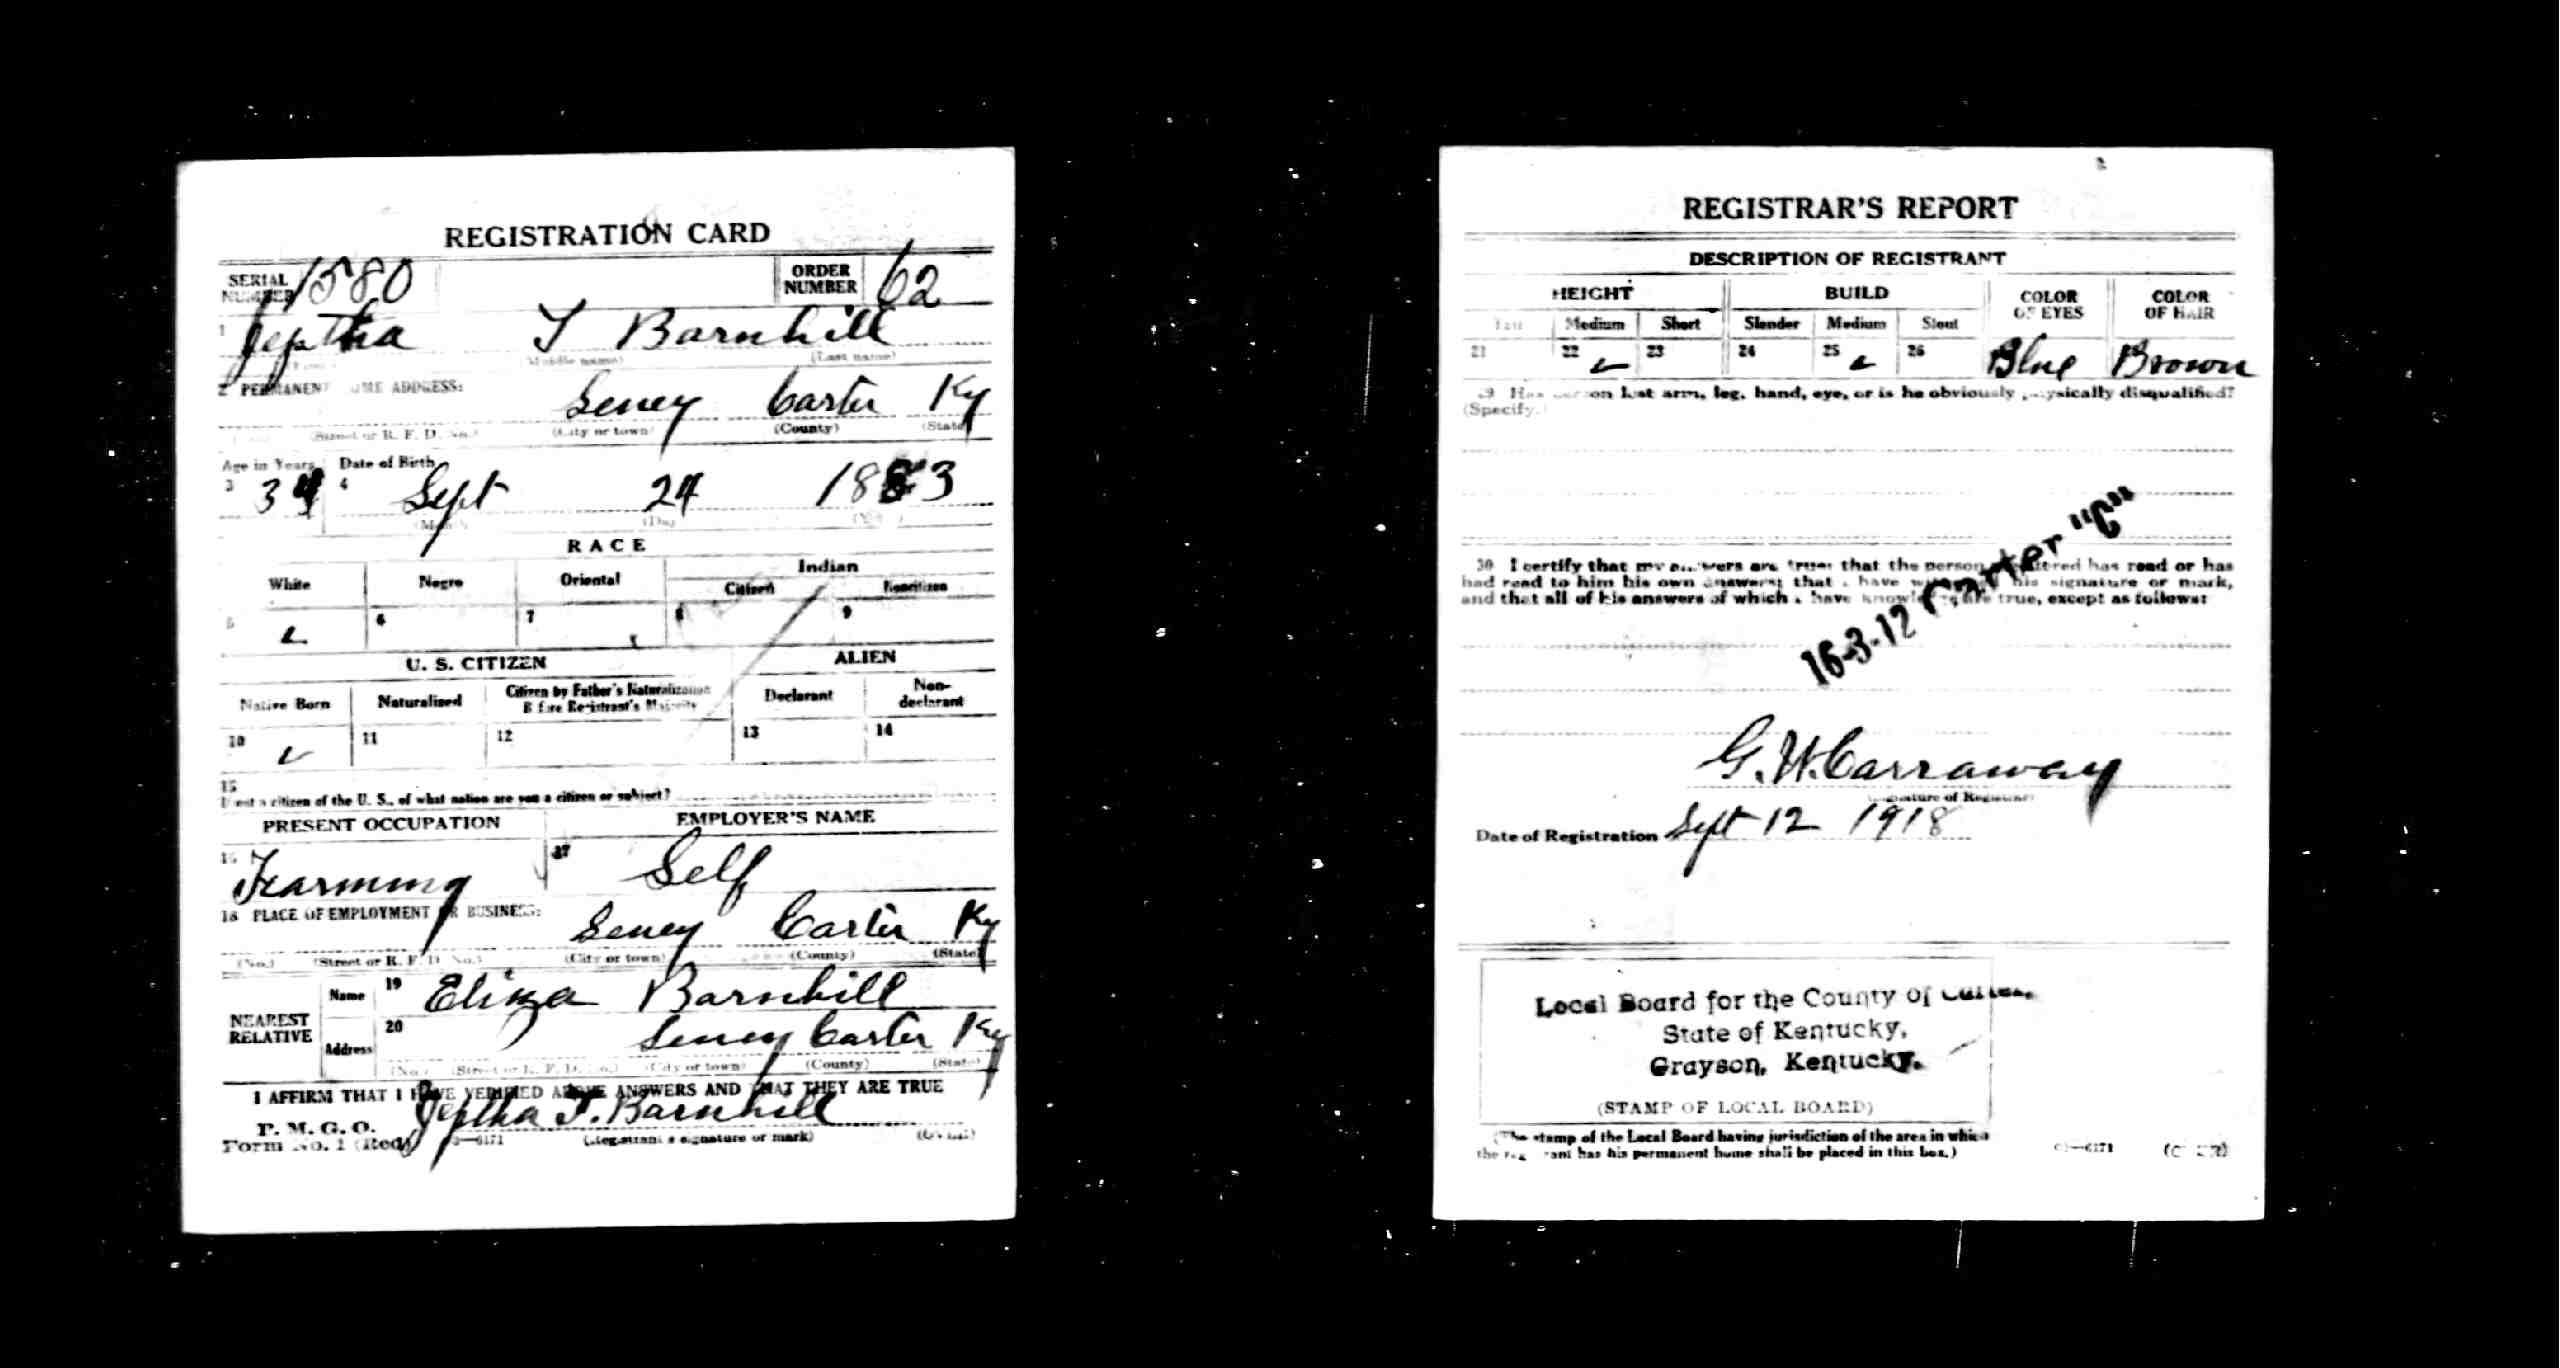 REGISTRATION CARD
SERIAL NUMBER 1580 ORDER NUMBER 62
1 Jeptha T Barnhill
(Middle name) (Last name)
2 PERMANENT HOME ADDRESS:
Seney Carter Ky
(Street or R. F. D. No.) (City or town) (County) (State)
Age in Years Date of Birth
3 34 4 Sept 24 1883
(Month) (Day) (Year)
RACE
White Negro Oriental Indian
Citizen Noncitizen
5 ✓ 6 7 8 9
U. S. CITIZEN ALIEN
Native Born Naturalized Citizen by Father's Naturalization Before Registrant's Majority Declarant Non-declarant
10 ✓ 11 12 13 14
15
If not a citizen of the U. S., of what nation are you a citizen or subject?
PRESENT OCCUPATION EMPLOYER'S NAME
16 Farming 17 Self
18 PLACE OF EMPLOYMENT OR BUSINESS:
Seney Carter Ky
(No.) (Street or R. F. D. No.) (City or town) (County) (State)
NEAREST RELATIVE
Name 19 Eliza Barnhill
Address 20 Seney Carter Ky
(No.) (Street or R. F. D. No.) (City or town) (County) (State)
I AFFIRM THAT I HAVE VERIFIED ABOVE ANSWERS AND THAT THEY ARE TRUE
P. M. G. O.
Form No. 1 (Red) Jeptha T. Barnhill
3—6171 (Registrant's signature or mark) (OVER)
REGISTRAR'S REPORT
DESCRIPTION OF REGISTRANT
HEIGHT BUILD COLOR OF EYES COLOR OF HAIR
Tall Medium Short Slender Medium Stout
21 22 ✓ 23 24 25 ✓ 26 Blue Brown
29 Has person lost arm, leg, hand, eye, or is he obviously physically disqualified?
(Specify.)
30 I certify that my answers are true; that the person registered has read or has
had read to him his own answers; that I have witnessed his signature or mark,
and that all of his answers of which I have knowledge are true, except as follows:
16-3-12 Carter "C"
G. W. Carraway
(Signature of Registrar)
Date of Registration Sept 12 1918
Local Board for the County of Carter,
State of Kentucky,
Grayson, Kentucky.
(STAMP OF LOCAL BOARD)
(The stamp of the Local Board having jurisdiction of the area in which
the registrant has his permanent home shall be placed in this box.)
3—6171 (OVER)